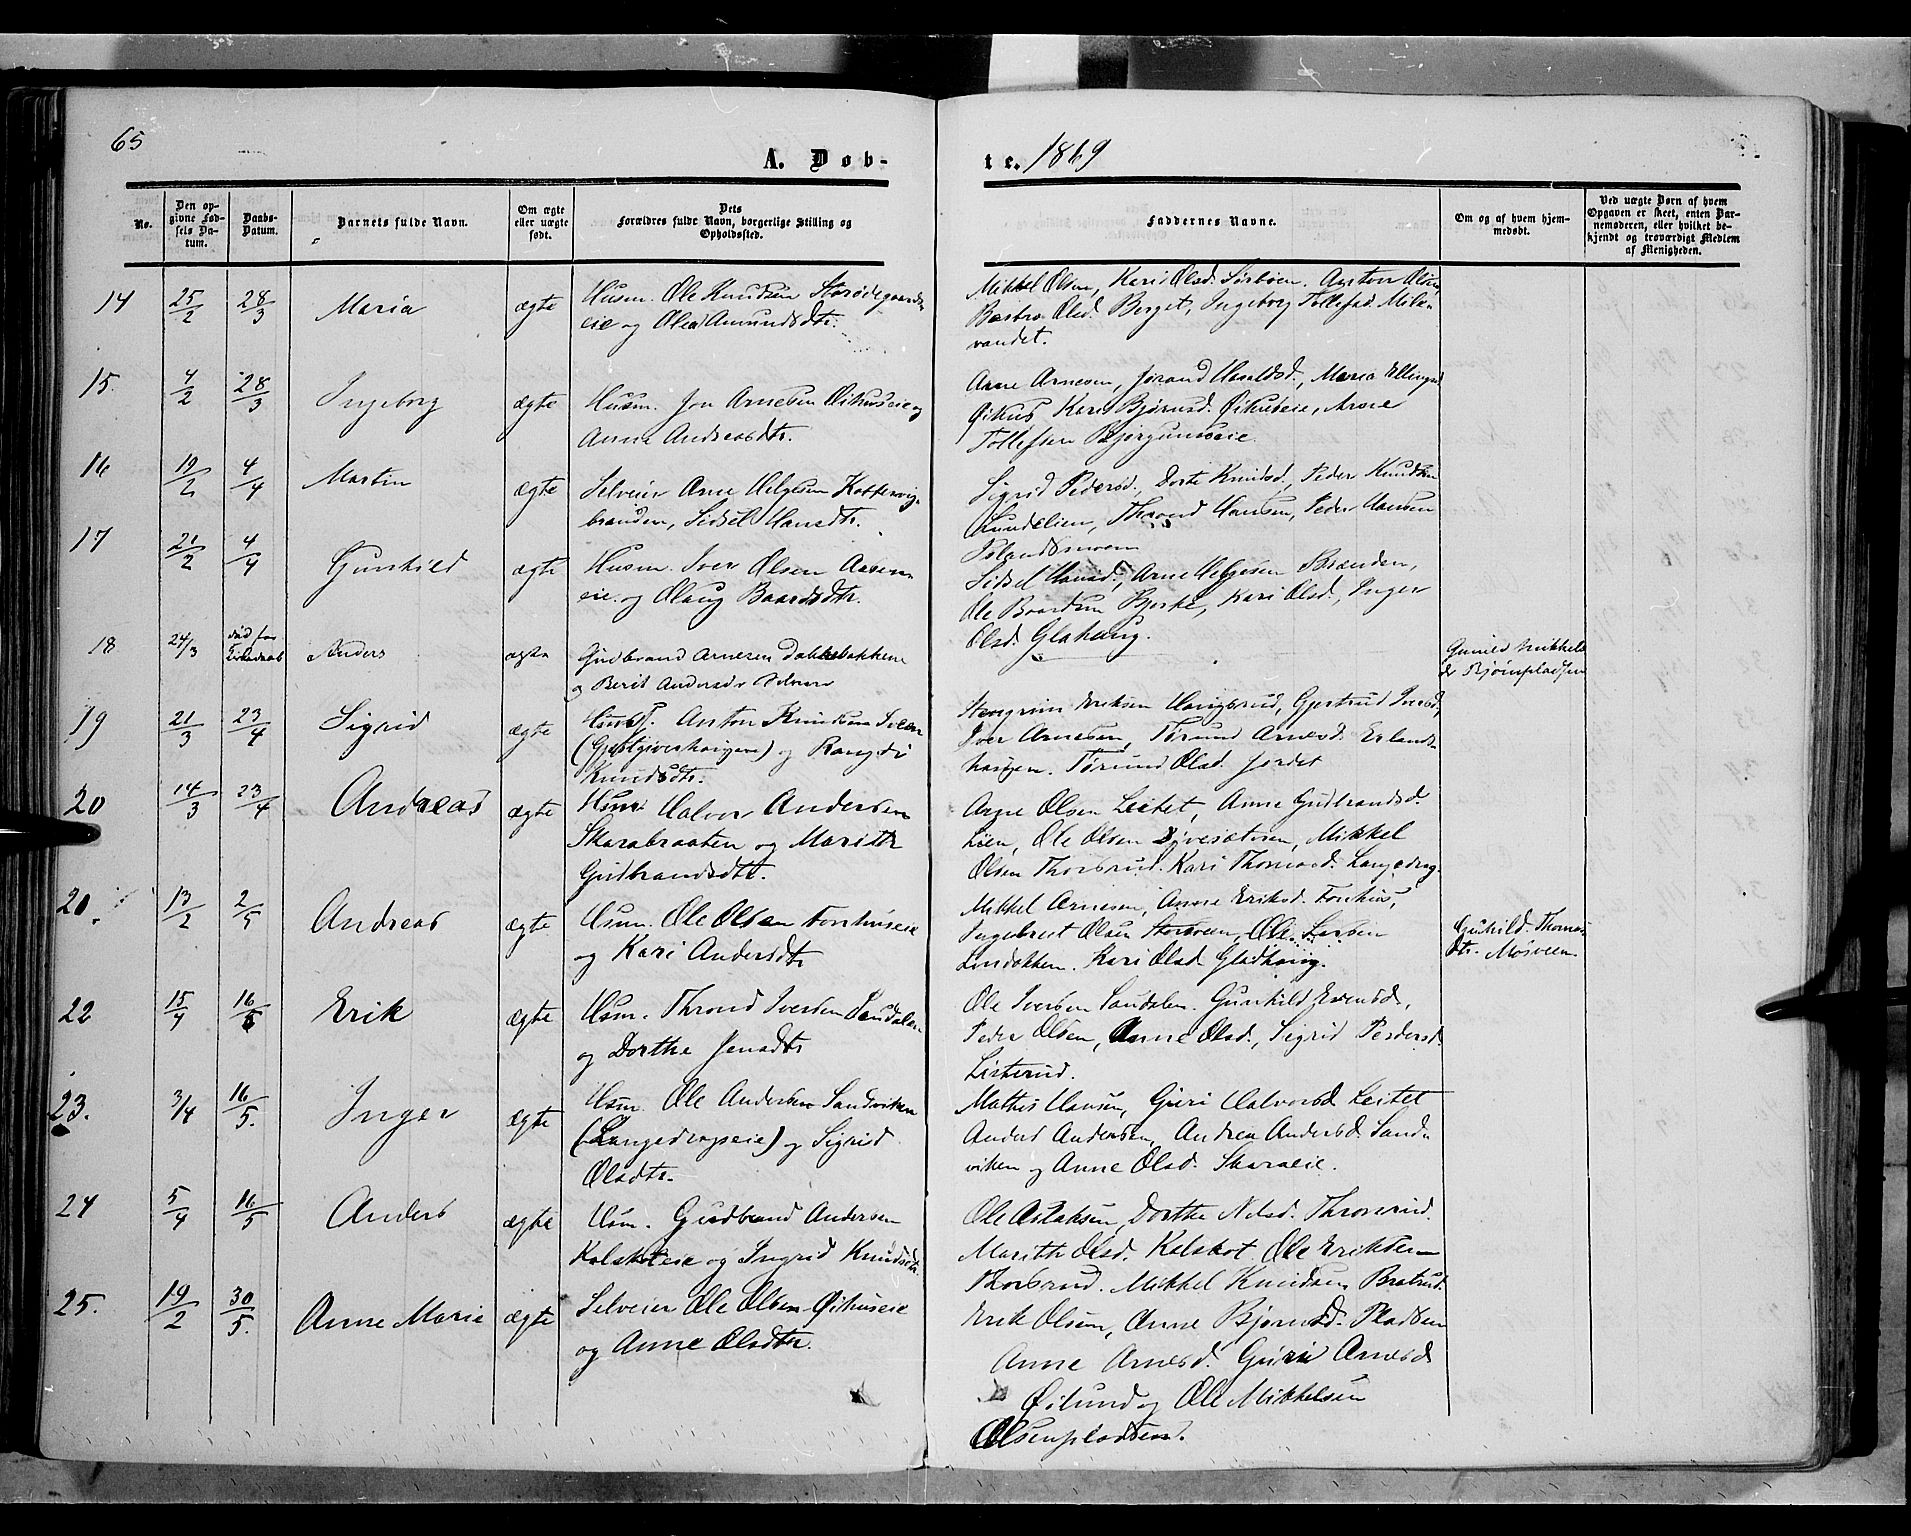 65
A. Døb-
te. 1869
No.
Den op-
givne Fød-
sels Da-
tum.
Daabs-
Datum.
Barnets fulde Navn.
Om ægte
eller uægte
født.
Dets
Forældres fulde Navn, borgerlige Stilling og
Opholdssted.
Faddernes Navne.
Om og af hvem hjem-
medøbt.
Ved uægte Børn af hvem
Opgaven er skeet, enten Bar-
nemoderen, eller hvilket be-
kjendt og troværdigt Medlem
af Menigheden.
14 25/2 28/3 Maria ægte
Husm. Ole Knudsen Storødegaards
eie og Olea Amundsdtr.
Mikkel Olsen, Kari Olsd. Sørbøen. Anton Olsen
Olsd. Berget, Ingeborg Tollefsd. Milde-
vandet.
15. 4/2 28/3 Ingeborg ægte
Husm. Jon Arnesen Øihuseie og
Anne Andreasdtr.
Arne Arnesen, Jørand Haraldsd., Maria Ellingsd
Øihus, Kari Bjørnsd. Øihuseie, Arne
Tollefsen Bjørgumseie.
16 19/2 4/4 Martin ægte
Selveier Arne Helgesen
branden, Sidsel Hansdtr.
Sigrid Pedersd., Dorte Knudsd., Peder Knudsen
Lundelien, Thrond Hansen, Peder Hansen
Islandsmoen
17 21/2 4/4 Gunhild ægte
Husm. Iver Olsen
eie. og Olaug Baardsdtr.
Sidsel Hansd., Arne Helgesen Brænden,
Ole Baardsen Bjerke, Kari Olsd., Inger
Olsd. Glahaug.
18 24/3 død før
Kirkedaab Anders ægte
Gudbrand Arnesen Dokkebakkene
og Berit Andersdr Selveier
Gunild Mikkels
dr Bjørnpladsen
19 21/3 23/4 Sigrid ægte
Husm. Anton Knudsen Sveen
(Gjestgiverhaugen) og Rangdi
Knudsdtr.
Stengrim Eriksen Haugsrud, Gjertrud Iversd,
Iver Arnesen, Torund Arnesd. Erlands-
haugen. Torund Olsd. Jordet
20 14/3 23/4 Andreas ægte
Husm Halvor Andersen
Skarabraaten og Marith
Gudbrandsdtr.
Arne Olsen Leitet, Anne Gudbrandsd.
Lien, Ole Olsen Mikkel
Olsen Thorsrud. Kari Thomasd. Langedrag.
21. 13/2 2/5 Andreas ægte
Husm. Ole Olsen Fonhuseie
og Kari Andersdtr
Mikkel Arnesen, Anne Eriksd. Fonhus,
Ingebret Olsen Storsveen, Ole Larsen
Lindokken. Kari Olsd. Gladhaug.
Gunhild Thomas
dtr. Mosveen.
22 15/4 16/5 Erik ægte
Husm. Thrond Iversen Sandalen
og Dorthe Jensdtr
Ole Iversen Sandalen. Gunhild Evensd,
Peder Olsen, Anne Olsd., Sigrid Pedersd.
Listerud.
23. 3/4 16/5. Inger ægte
Husm. Ole Andersen Sandviken
(Langedrageie) og Sigrid
Olsdtr.
Mathis Hansen, Guri Halvorsd. Leitet
Anders Andersen, Andrea Andersd. Sand-
viken og Anne Olsd. Skaraeie.
24 5/4 16/5 Anders ægte
Husm. Gudbrand Andersen
Kolskoteie og Ingrid Knudsdtr.
Ole Aslaksen, Dorthe Nilsd. Thronrud.
Marith Olsd. Kolskot. Ole Eriksen
Thorsrud. Mikkel Knudsen Bratrud.
25. 19/2 30/5. Anne Marie ægte
Selveier Ole Olsen Øihuseie
og Anne Olsdtr.
Erik Olsen, Anne Bjørnsd. Pladsen
Anne Arnesd. Guri Arnesd
Øilund og Ole Mikkelsen
Olsenpladsen.